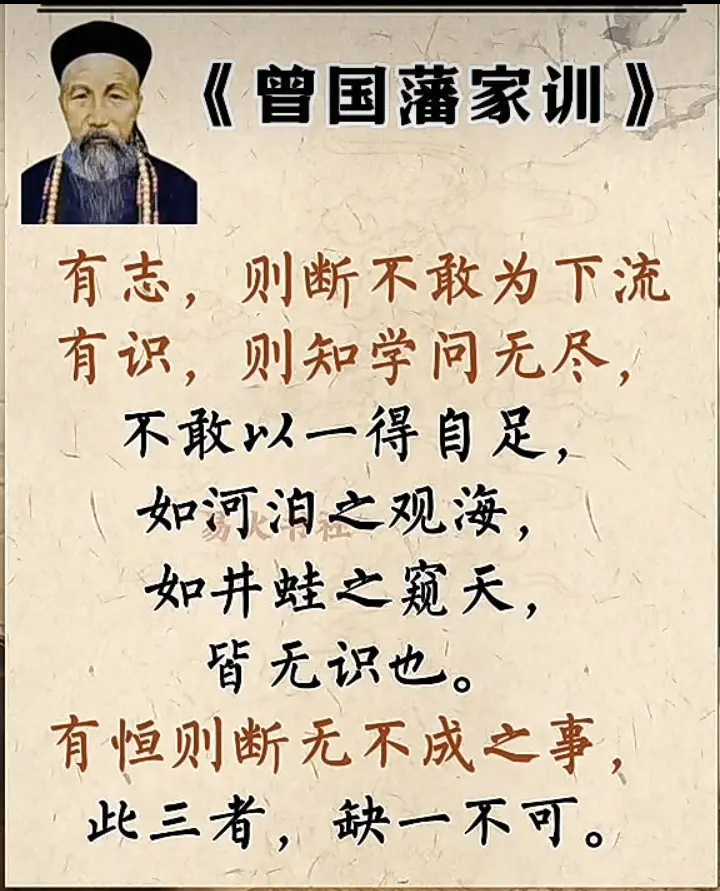 《曾国藩家训》
有志，则断不敢为下流
有识，则知学问无尽，
不敢以一得自足，
如河泊之观海，
如井蛙之窥天，
皆无识也。
有恒则断无不成之事，
此三者，缺一不可。